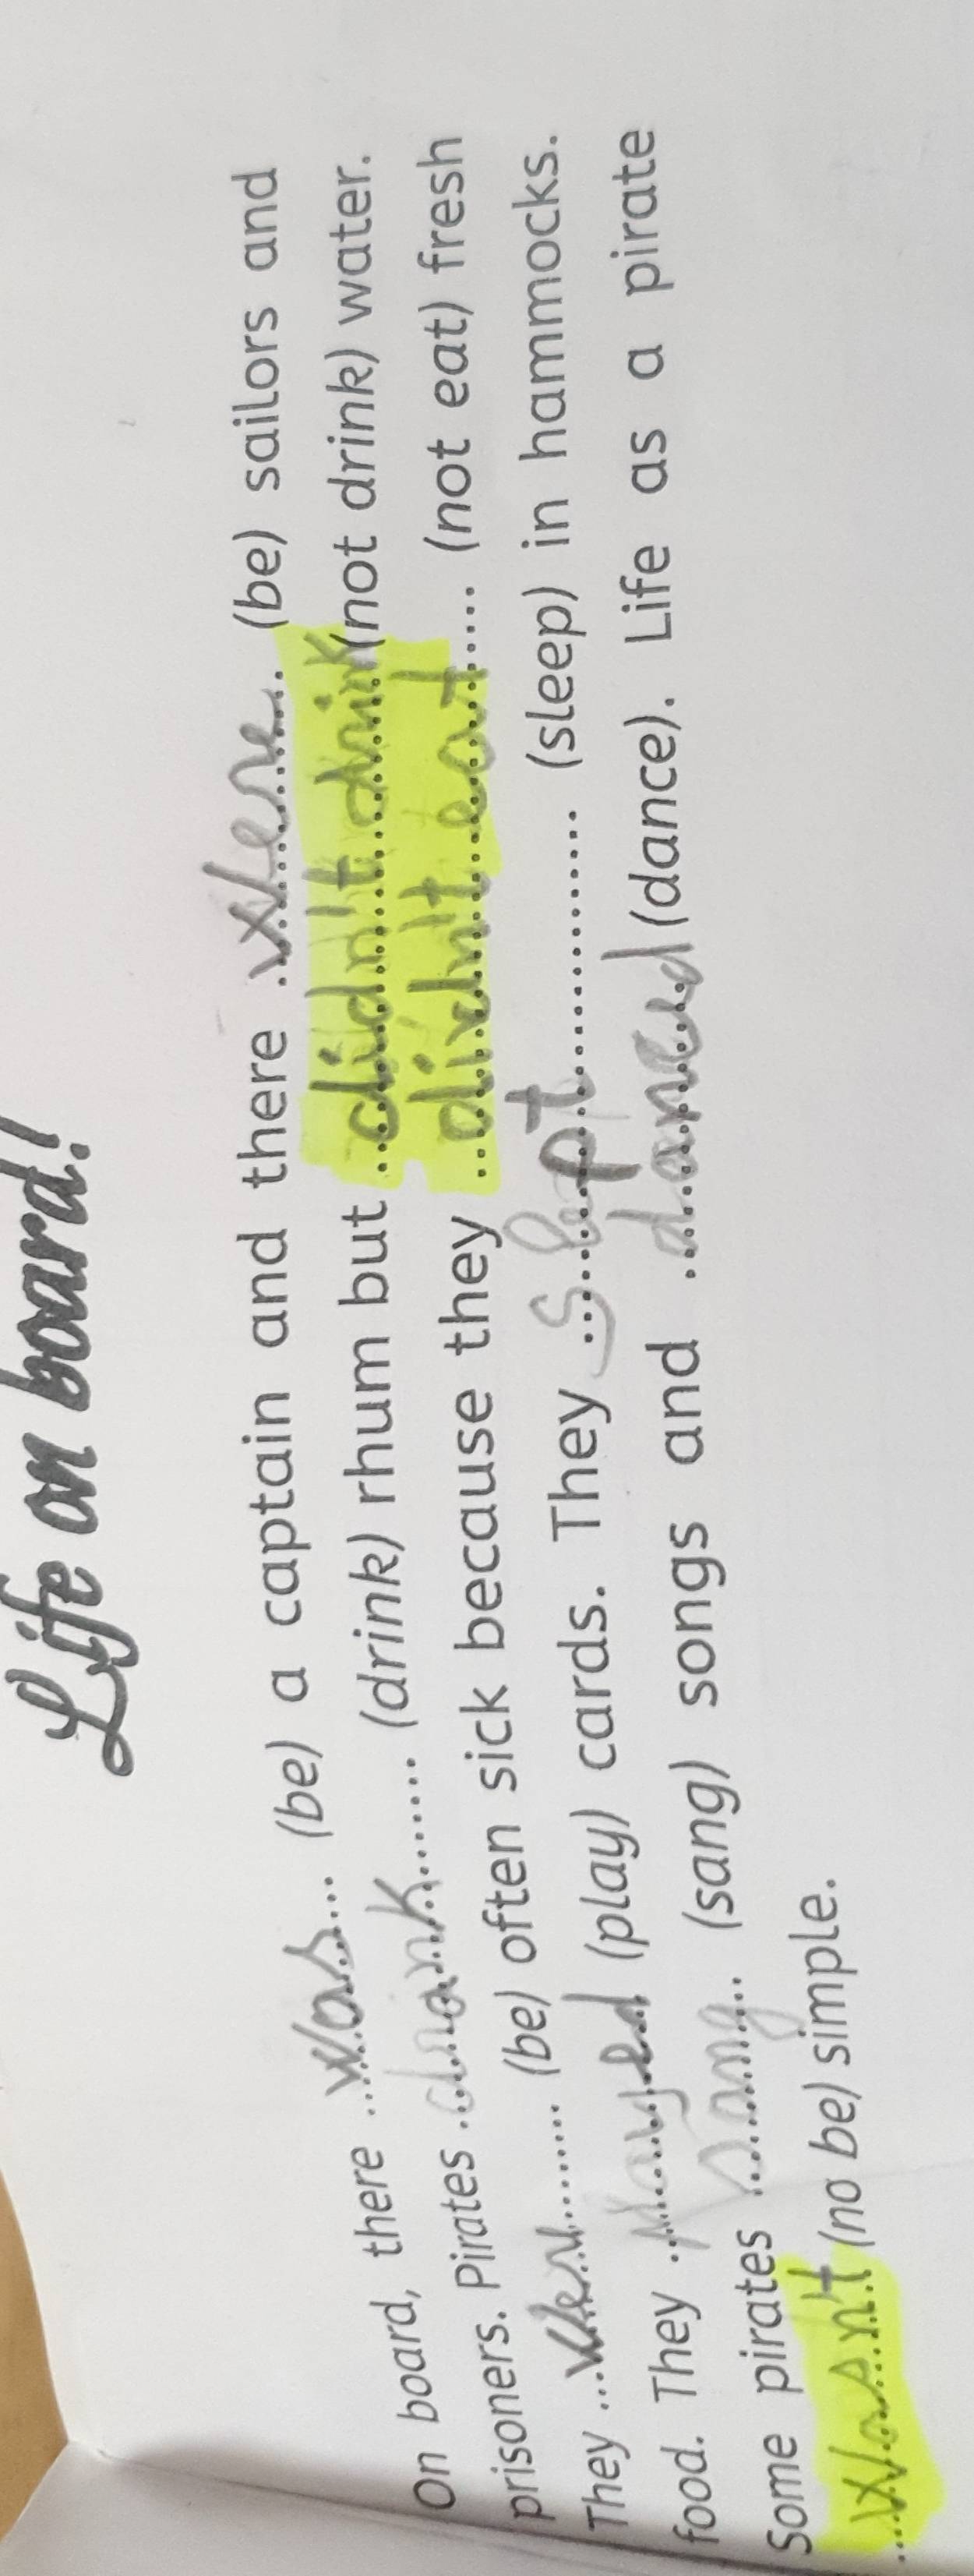 Life on board!
On board, there ...was... (be) a captain and there ...were... (be) sailors and
prisoners. Pirates ...drank... (drink) rhum but ...didn't drink (not drink) water.
They ...were... (be) often sick because they ...didn't eat... (not eat) fresh
food. They ...played (play) cards. They ...slept... (sleep) in hammocks.
Some pirates ...sang... (sang) songs and ...danced (dance). Life as a pirate
...wasn't (no be) simple.